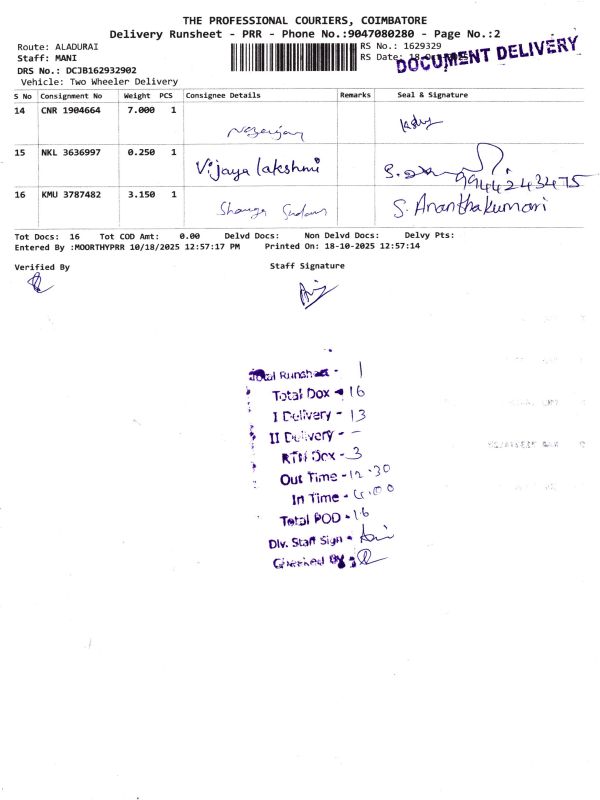 THE PROFESSIONAL COURIERS, COIMBATORE
Delivery Runsheet - PRR - Phone No.:9047080280 - Page No.:2
Route: ALADURAI
RS No.: 1629329
Staff: MANI
RS Date: 18-
DOCUMENT DELIVERY
DRS No.: DCJB162932902
Vehicle: Two Wheeler Delivery
S No Consignment No Weight PCS Consignee Details Remarks Seal & Signature
14 CNR 1904664 7.000 1
15 NKL 3636997 0.250 1 Vijaya lakshmi
9944243475
16 KMU 3787482 3.150 1 S. Ananthakumari
Tot Docs: 16 Tot COD Amt: 0.00 Delvd Docs: Non Delvd Docs: Delvy Pts:
Entered By :MOORTHYPRR 10/18/2025 12:57:17 PM Printed On: 18-10-2025 12:57:14
Verified By Staff Signature
Total Runsheet - 1
Total Dox - 16
I Delivery - 13
II Delivery - -
RTN Dox - 3
Out Time - 12.30
In Time - 6.00
Total POD - 16
Dlv. Staff Sign -
Checked By -